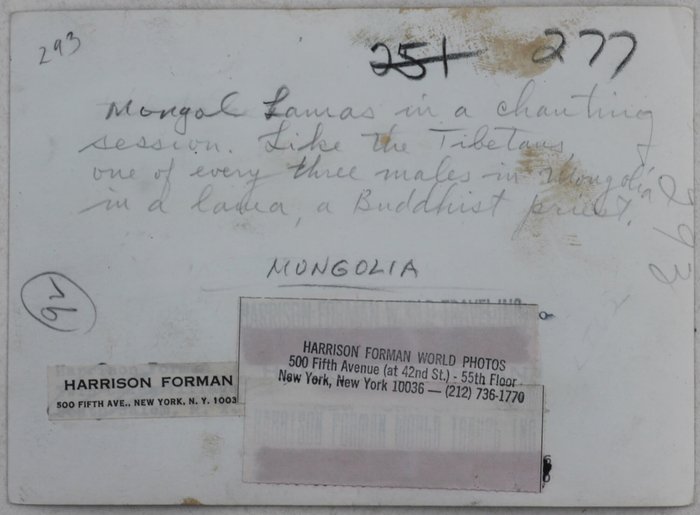 293
251 277
Mongol Lamas in a chanting
session. Like the Tibetans,
one of every three males in Mongolia
in a lama, a Buddhist priest.
MONGOLIA
92
HARRISON FORMAN
500 FIFTH AVE., NEW YORK, N. Y. 1003
HARRISON FORMAN WORLD PHOTOS
500 Fifth Avenue (at 42nd St.) - 55th Floor
New York, New York 10036 — (212) 736-1770